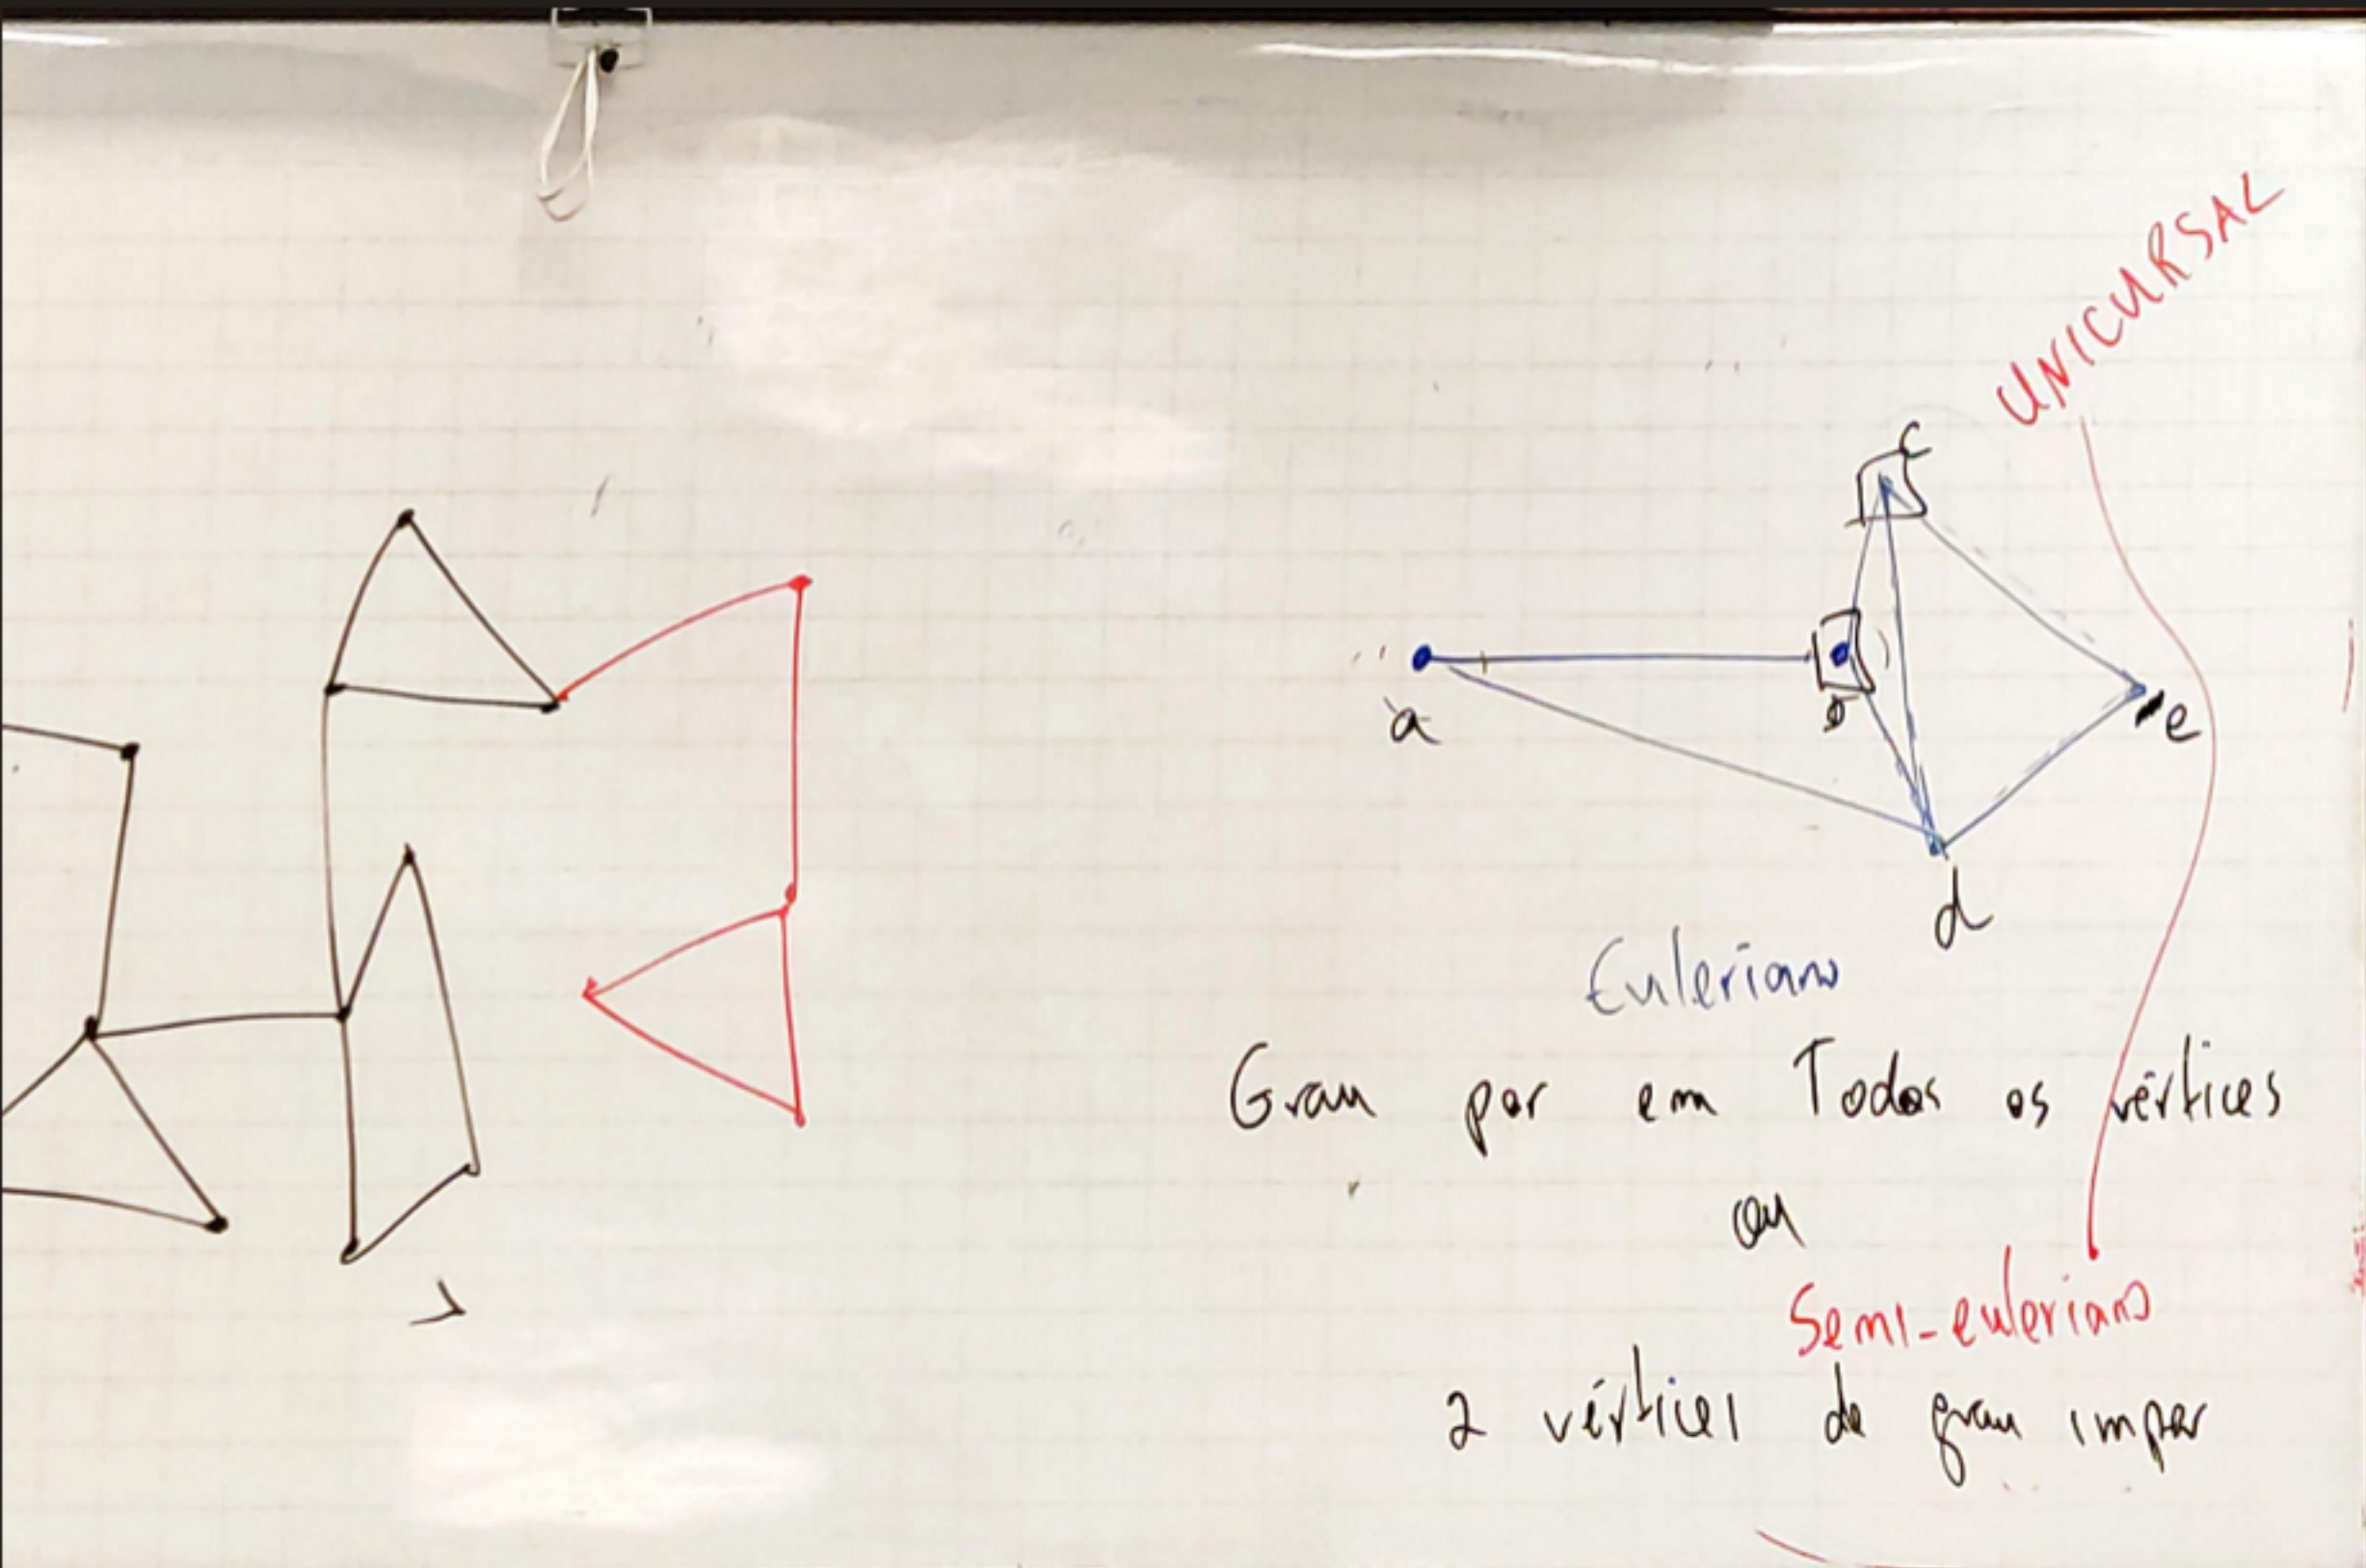 UNICURSAL
c
a
b
e
d
Euleriano
Grau par em Todos os vértices
ou
Semi-euleriano
2 vértices de grau impar